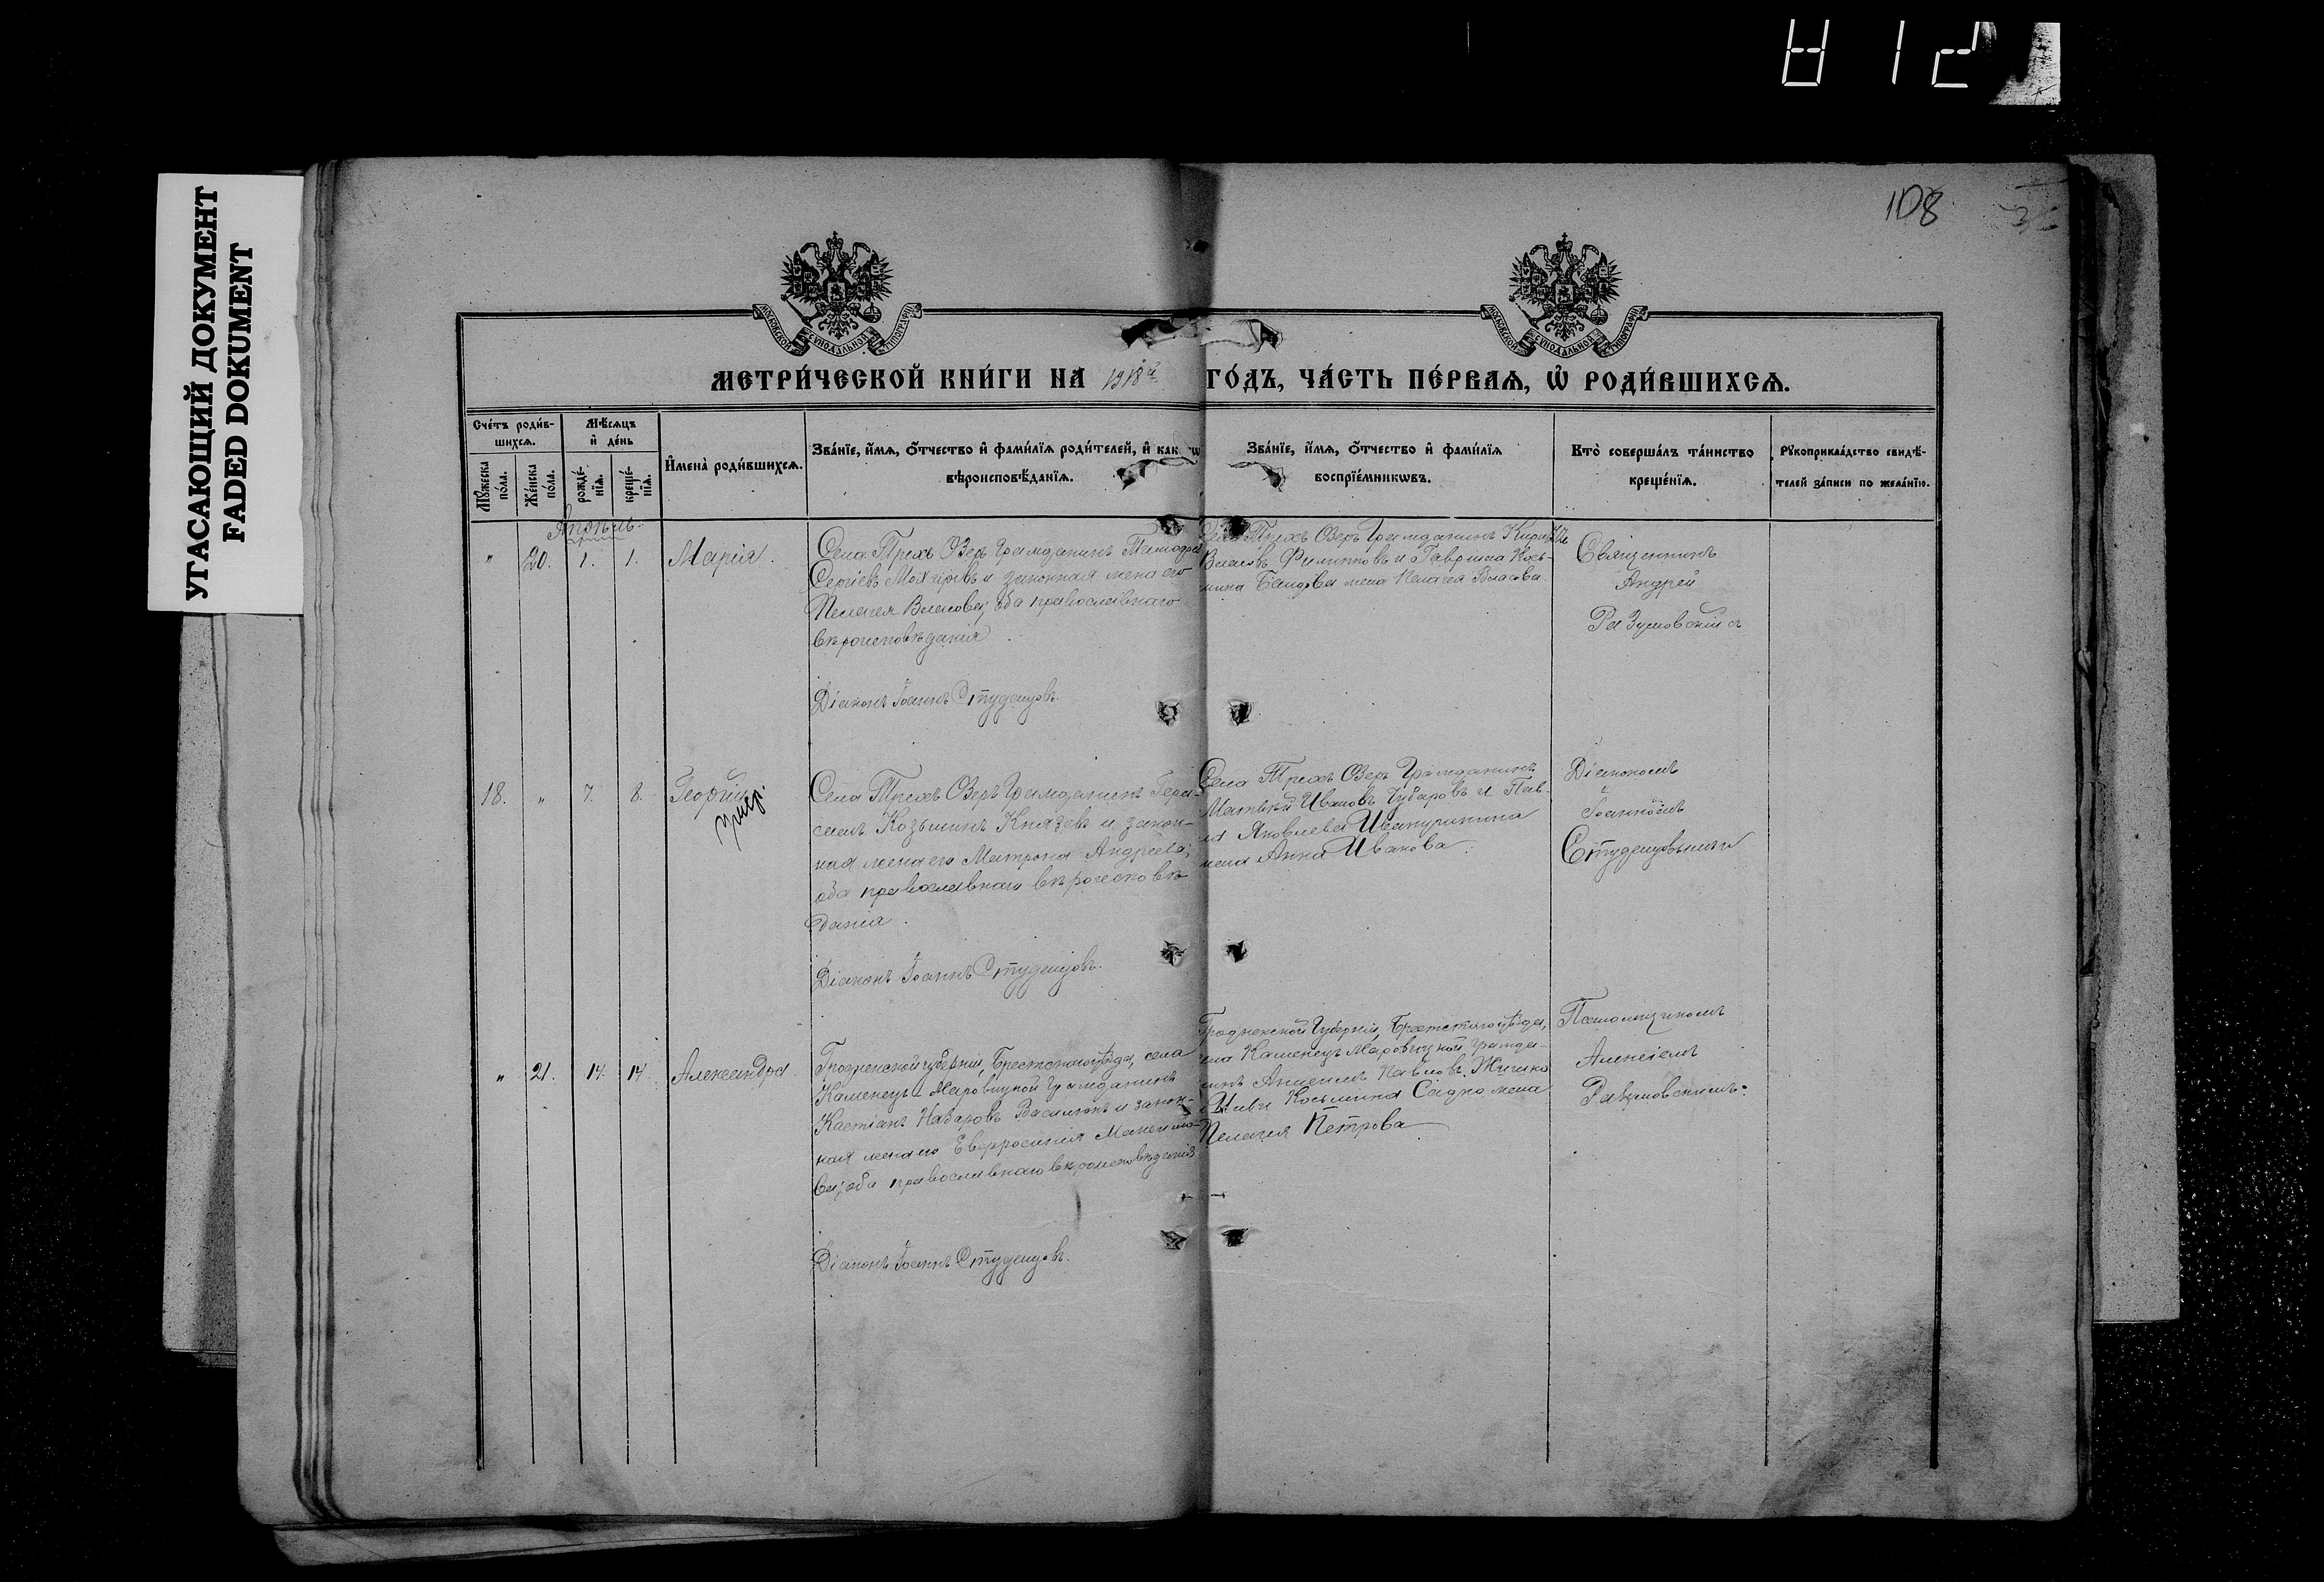 812
108
УГАСАЮЩИЙ ДОКУМЕНТ
FADED DOKUMENT
МОСКОВСКОЙ СУНОДАЛЬНОЙ ТИПОГРАФІИ
МОСКОВСКОЙ СУНОДАЛЬНОЙ ТИПОГРАФІИ
МЕТРИ́ЧЕСКОЙ КНИ́ГИ НА 1918й ГО́ДЪ, ЧА́СТЬ ПЕ́РВАѦ, Ѡ҆ РОДИ́ВШИХСѦ.
Сче́тъ роди́в-
шихсѧ.
Мѣ́сѧцъ
и҆ де́нь
Мꙋ́жеска
по́ла.
Же́нска
по́ла.
рожде́-
нїѧ.
креще́-
нїѧ.
И҆мена̀ роди́вшихсѧ.
Зва́нїе, и҆́мѧ, ѻ҆́тчество и҆ фами́лїѧ роди́телей, и҆ как
вѣроисповѣ́данїѧ.
Зва́нїе, и҆́мѧ, ѻ҆́тчество и҆ фами́лїѧ
воспрїе́мникѡвъ.
Кто̀ соверша́лъ та́инство
креще́нїѧ.
Рꙋкоприкла́дство свидѣ́-
телей за́писи по жела́нїю.
Апрѣль
" 20. 1. 1. Марія.
Села Трехъ Озеръ Гражданинъ
Сергіевъ и законная жена его
Пелагея Власова, оба православнаго
вѣроисповѣданія.
Діаконъ Іоаннъ Студенцовъ.
Села Трехъ Озеръ Гражданинъ
Власовъ Филипповъ и Гавріила Кось-
мина жена Пелагея Власова.
Священникъ
Андрей
Разумовскій съ
18. " 7. 8. Георгій
умер.
Села Трехъ Озеръ Гражданинъ Гера-
симъ Козьминъ Князевъ и закон-
ная жена его Матрона Андреева,
оба православнаго вѣроисповѣ-
данія.
Діаконъ Іоаннъ Студенцовъ.
Села Трехъ Озеръ Гражданинъ
Матвѣй Ивановъ Чубаровъ и Пав-
ла Яковлева жена Анна Иванова.
Діакономъ
Іоанномъ
Студенцовымъ
" 21. 14. 14. Александра.
Гродненской губерніи, Брестскаго уѣзда, села
Каменецъ Гражданинъ
Касіанъ и закон-
ная жена его Евфросинія Максимо-
ва, оба православнаго вѣроисповѣданія
Діаконъ Іоаннъ Студенцовъ.
Гродненской Губерніи, Брестскаго уѣзда,
села Каменецъ гражда-
нинъ Павловъ
Косьмина жена
Пелагея Петрова
Псаломщикомъ
Алексіемъ
Разумовскимъ.